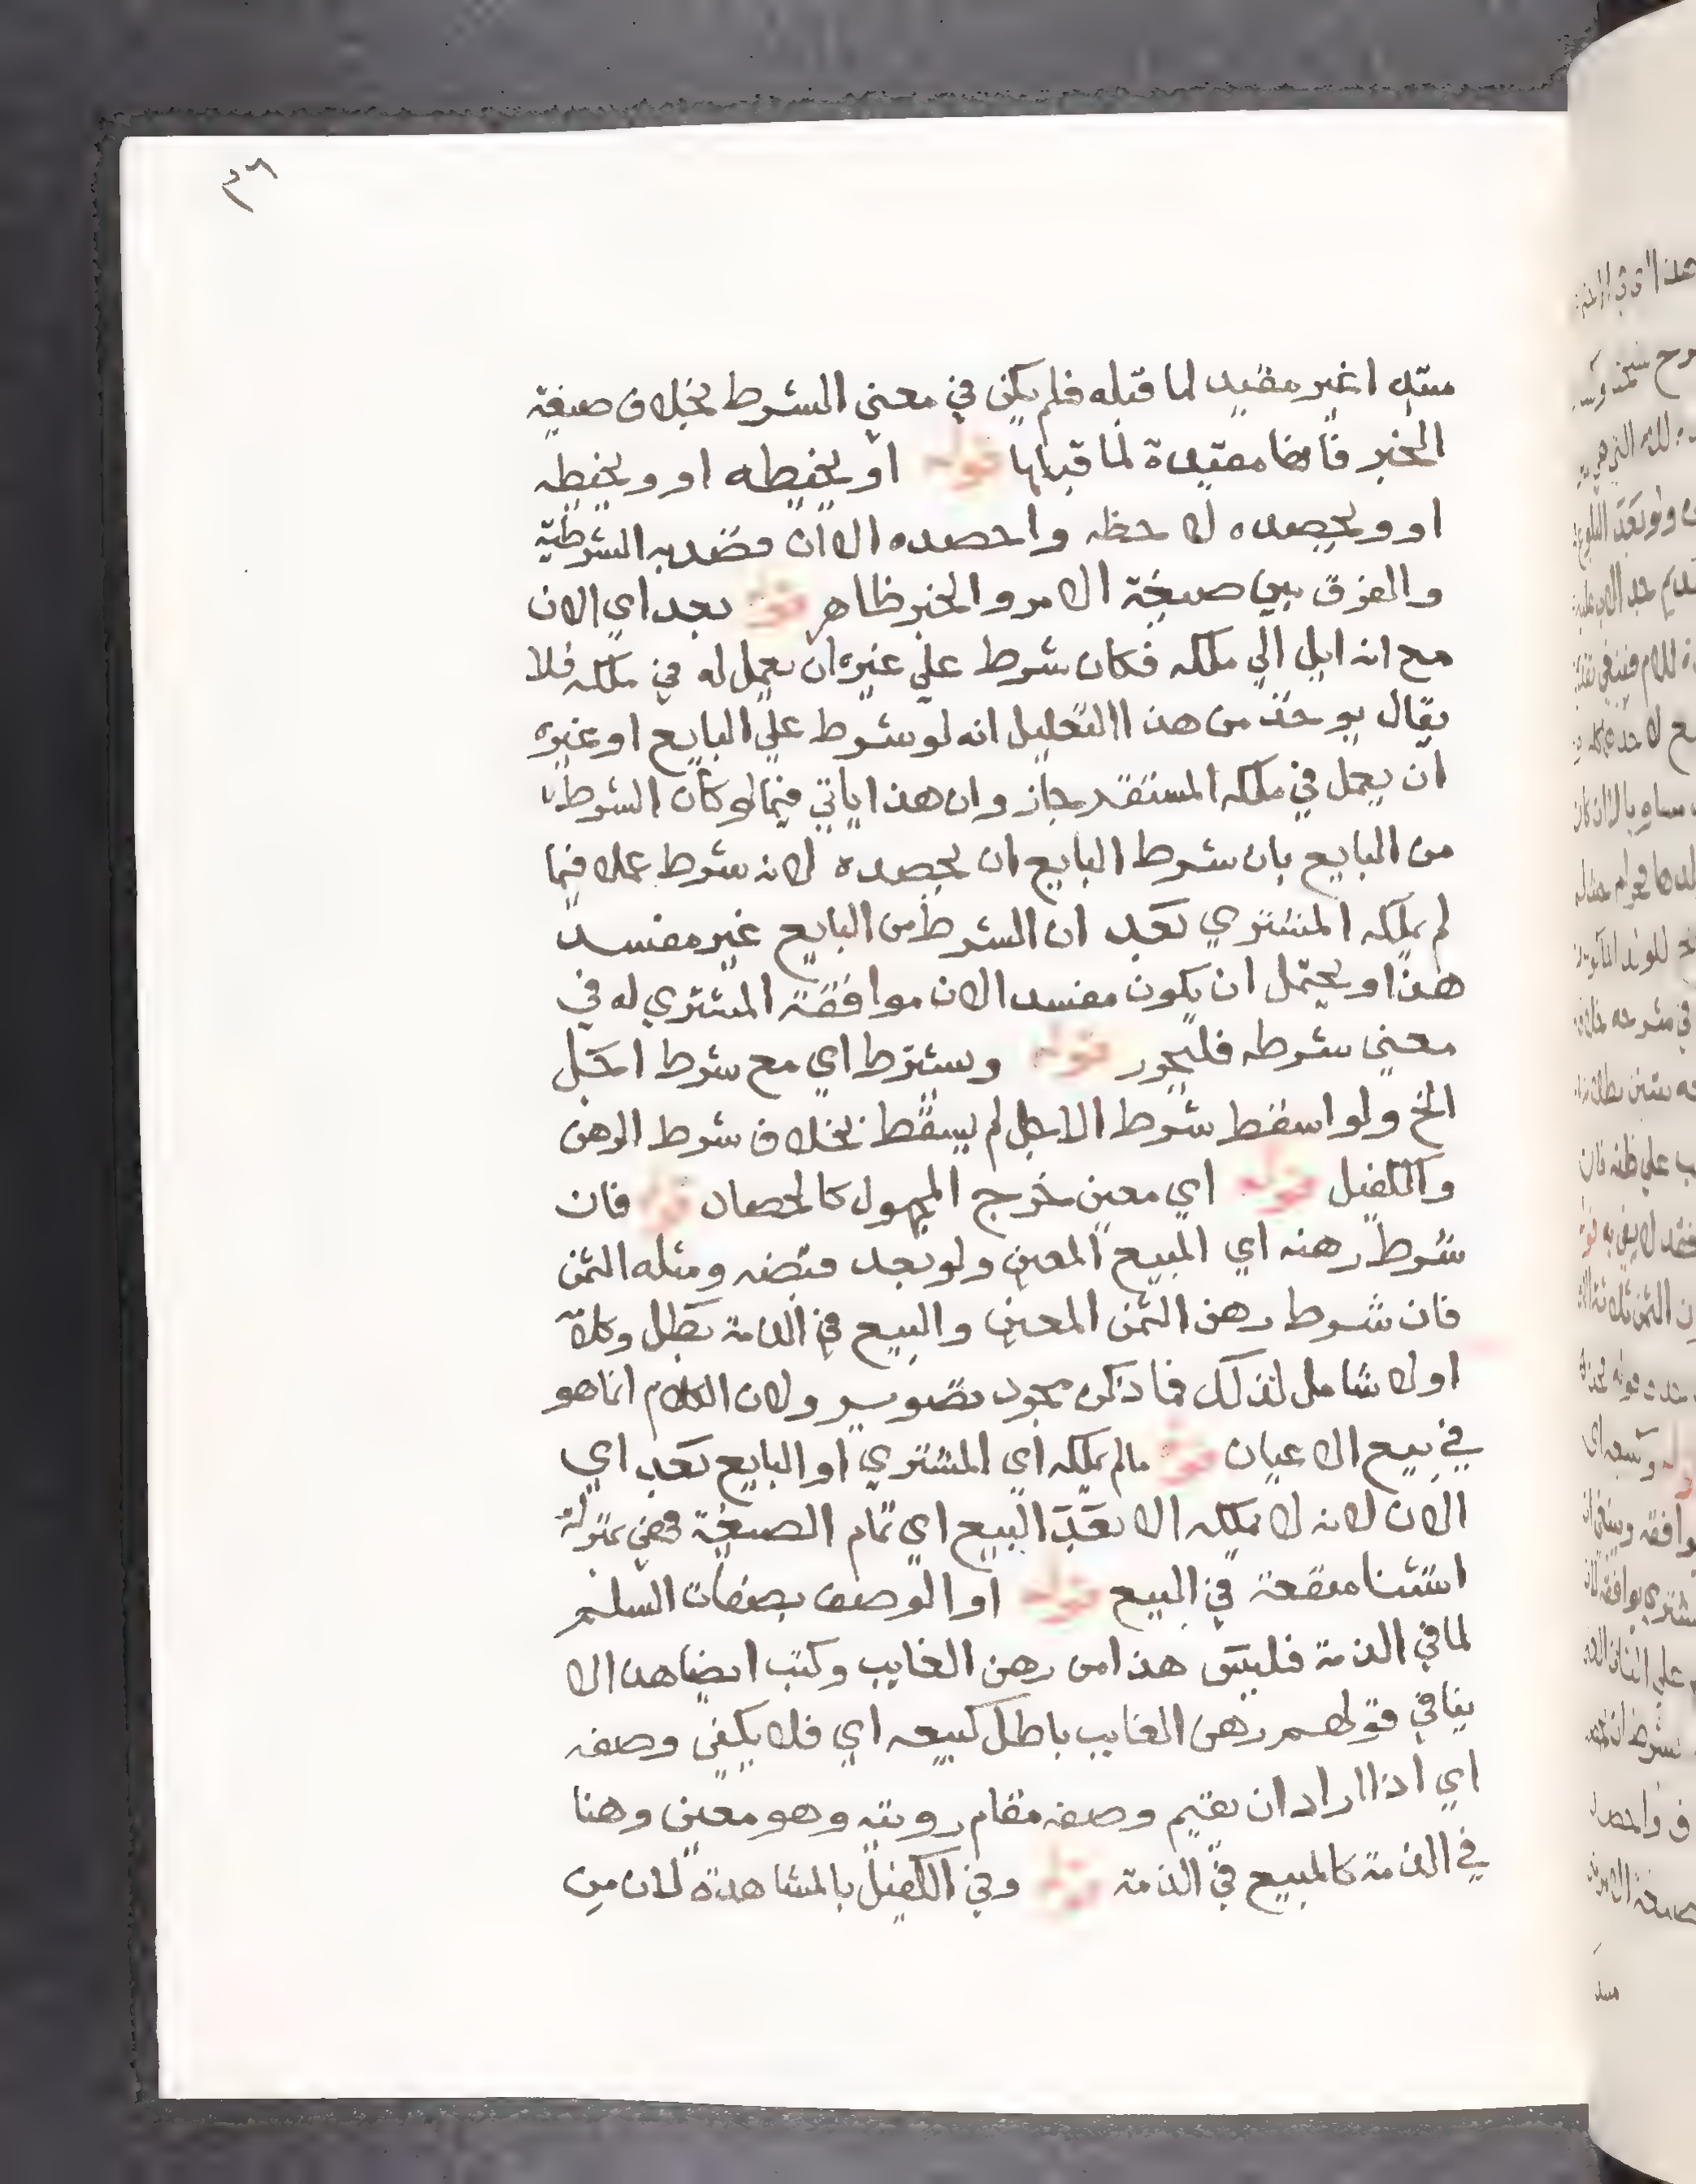 ٣٦
مبتدا غير مقيد لما قبله فلم يكن في معني الشرط بخلاف صيغة
الخبر فانها مقيدة لما قبلها قوله او يخيطه او ويخيطه
او ويحصده لا خطه واحصده الا ان قصد به الشرطية
والفرق بين صيغة الامر والخبر ظاهر قوله بعد اي الان
مع انه ايل الي ملكه فكان شرط علي غيره ان يعمل له في ملكه فلا
يقال يوخذ من هذا التعليل انه لو شرط علي البايع او غيره
ان يعمل في ملكه المستقر جاز وان هذا ياتي فيما لو كان الشرط
من البايع بان شرط البايع ان يحصده لانه شرط عملا فيما
لم يملكه المشتري بعد ان الشرط من البايع غير مفسد
هذا ويحتمل ان يكون مفسدا لان موافقة المشتري له في
معني شرطه فليحرر قوله وشترط اي مع شرط اجل
الخ ولو اسقط شرط الاجل لم يسقط بخلاف شرط الرهن
والكفيل قوله اي معين خرج المجهول كالحصاد قوله فان
شرط رهنه اي المبيع المعين ولو بعد قبضه ومثله الثمن
فان شرط رهن الثمن المعين والبيع في الذمة بطل وكلامه
اولا شامل لذلك فما ذكر مجرد تصوير ولان الكلام انما هو
في بيع الاعيان قوله مالم يملكه اي المشتري او البايع بعد اي
الان لانه لا يملكه الا بعد البيع اي تمام الصيغة فهي بمنزلة
استثنا منفعة في البيع قوله او الوصف بصفات السلم
لما في الذمة فليس هذا من رهن الغايب وكتب ايضا هذا لا
ينافي قولهم رهن الغايب باطل كبيعه اي فلا يكفي وصفه
اي اذا اراد ان يقيم وصفه مقام رويته وهو معين وهنا
في الذمة كالمبيع في الذمة قوله وفي الكفيل بالمشاهدة لان من